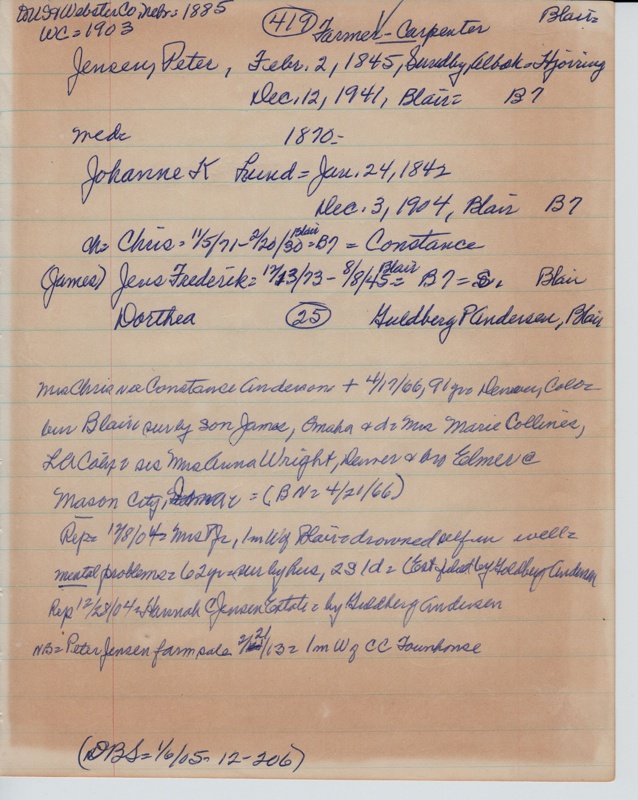 DUSA Webster Co, Nebr = 1885 (419) Farmer - Carpenter Blair=
WC = 1903
Jensen, Peter, Febr. 2, 1845, Sundby, Albæk = Hjørring
Dec. 12, 1941, Blair = B7
med= 1870 -
Johanne K Lund = Jan. 24, 1842
Dec. 3, 1904, Blair B7
ch= Chris = 11/5/71 - 2/20/30 Blair = B7 = Constance
(James) Jens Frederik = 12/13/73 - 8/8/45 Blair = B7 = S. Blair
Dorthea (25) Guldberg P Andersen, Blair
Mrs Chris Constance Anderson + 4/17/66, 91 yr Denver, Colo=
bur Blair = sur by son James, Omaha & d= Mrs Marie Collines,
LA Calif = sis Mrs Anna Wright, Denver & bro Elmer @
Mason City, = (BN = 4/20/66)
Rep = 12/8/04 = Mrs PJ, 1 m W of Blair = drowned self in well =
mental problems = 62 yr = sur by hus, 2 S 1 d = (Est filed by Goldberg Andersen
Rep 12/28/04 = Hannah C Jensen Estate = by Guldberg Andersen
NB = Peter Jensen farm sale 2/21/13 = 1 m W of CC Townhouse
(DBS = 1/6/05 - 12-206)